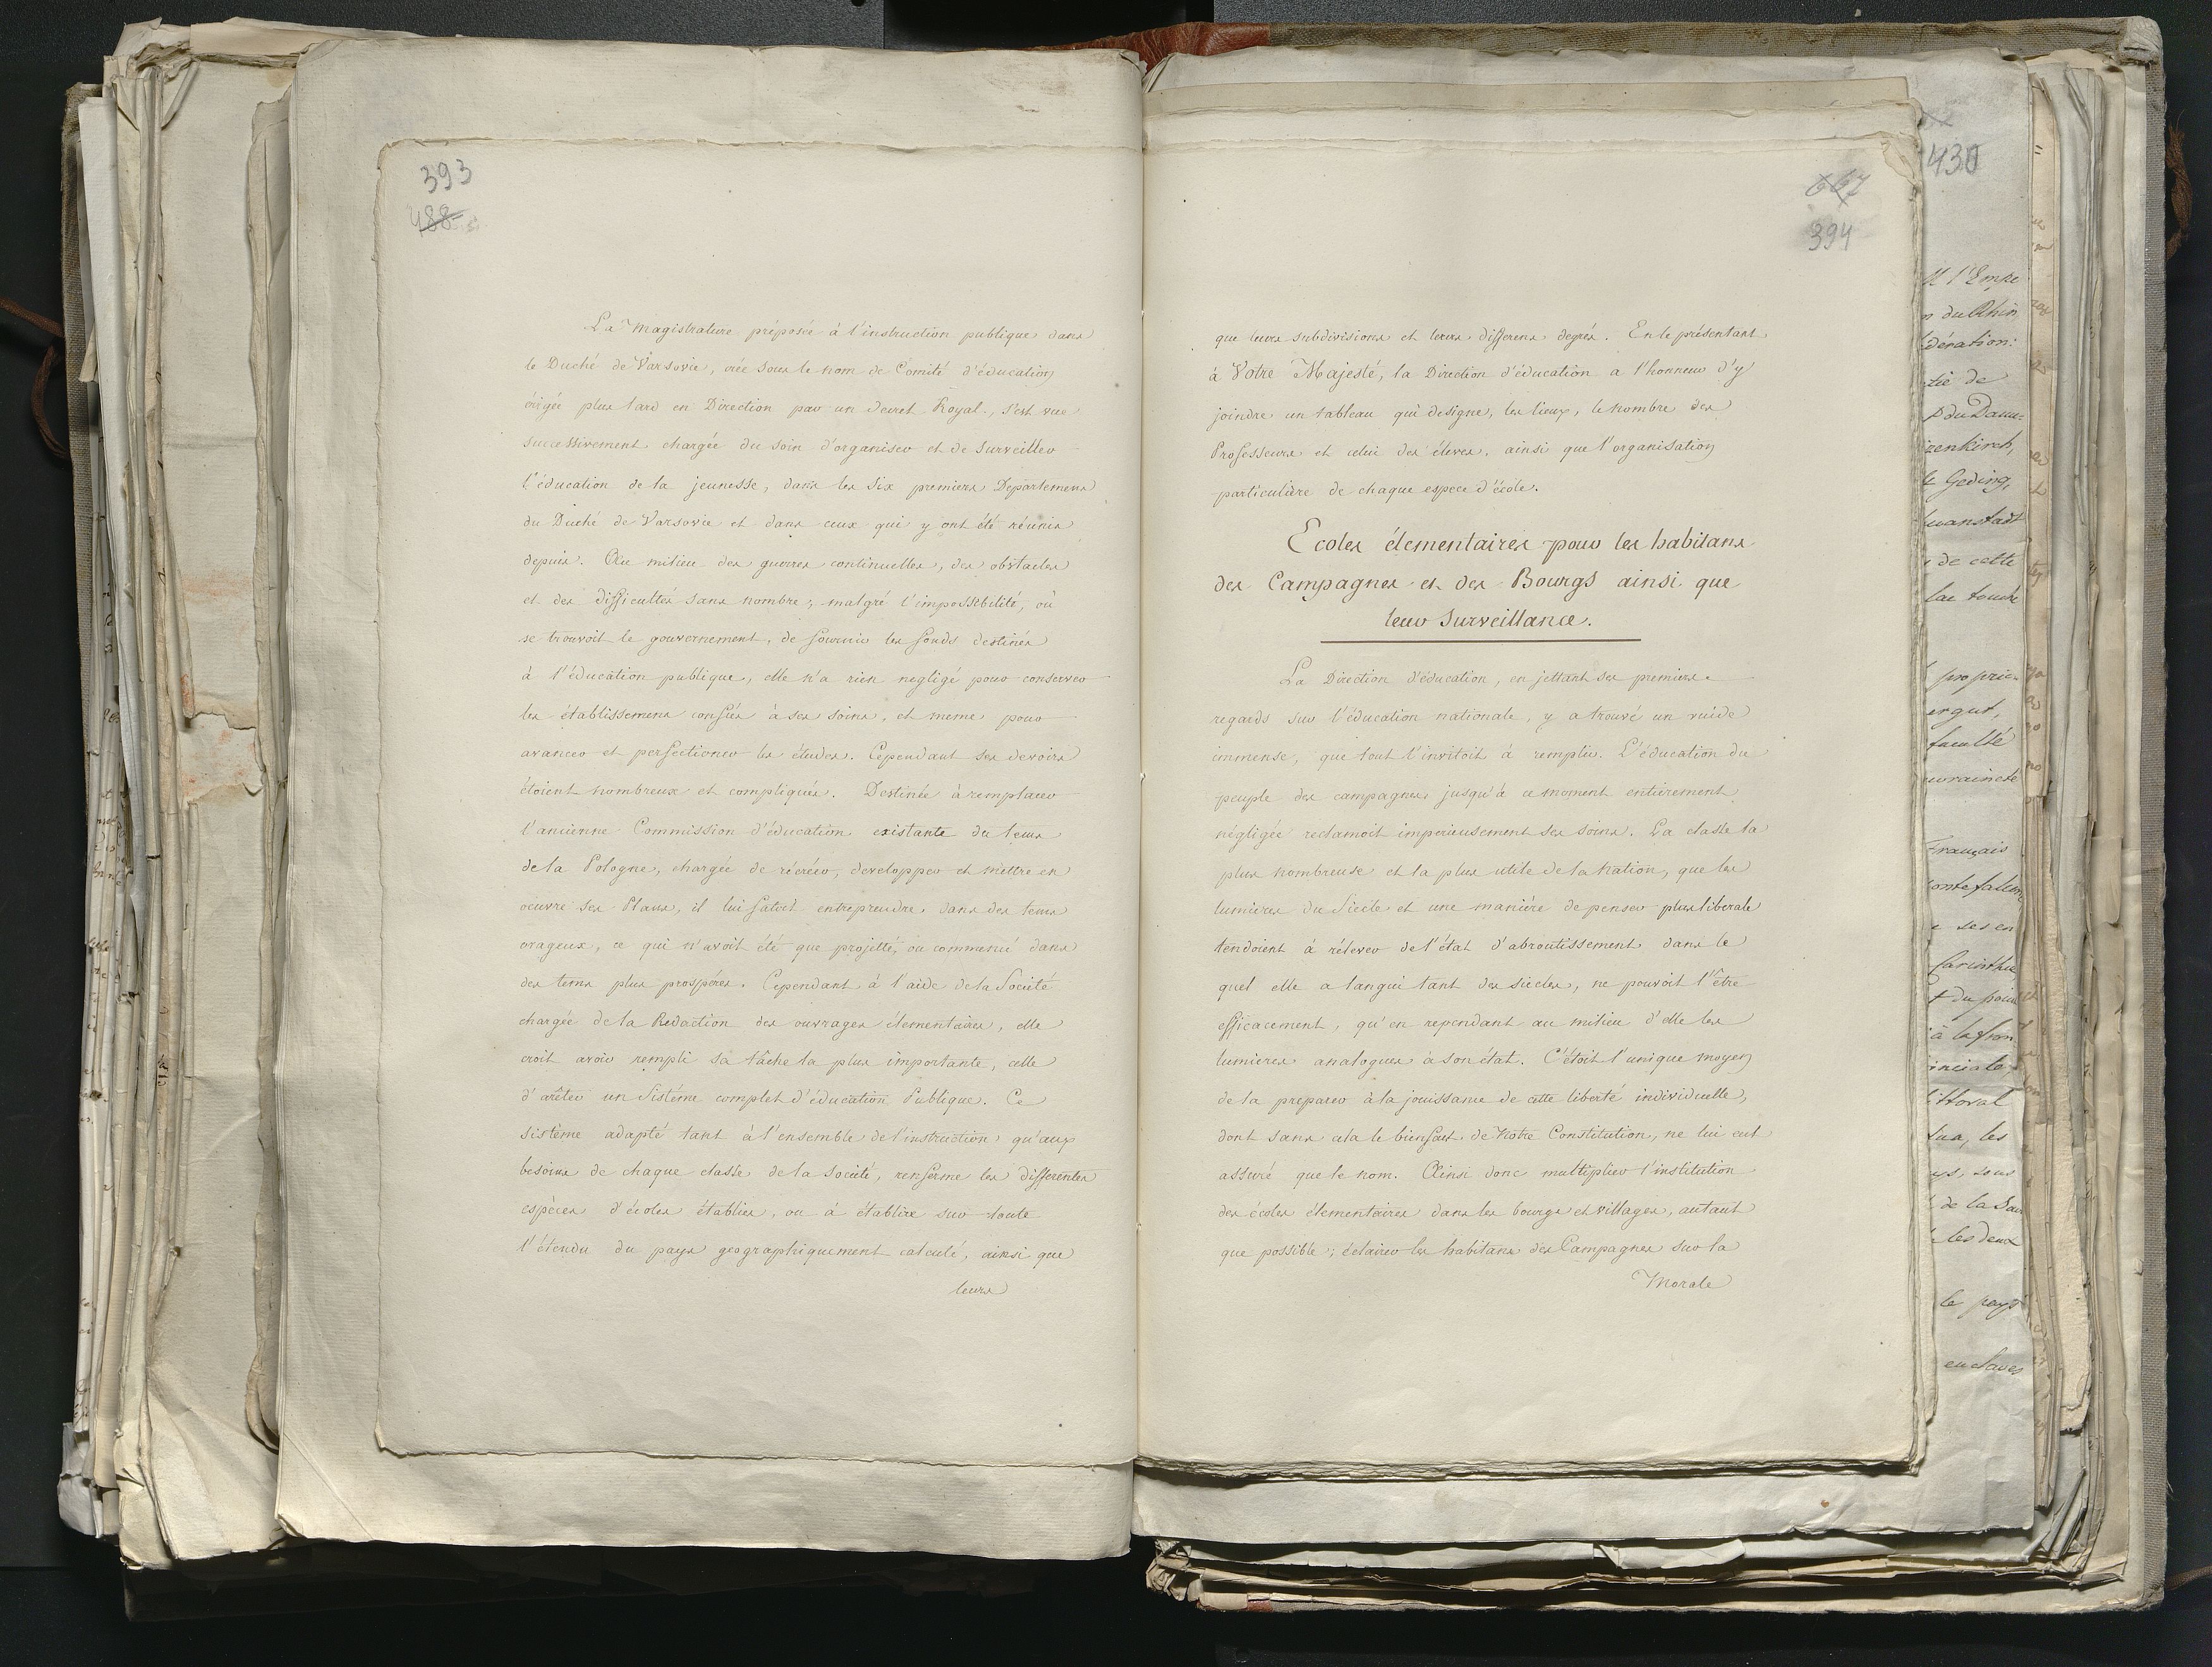 393
488
La Magistrature préposée à l'instruction publique dans
le Duché de Varsovie, créé sous le nom de Comité d'éducation
érigée plus tard en Direction par un decret Royal, s'est vue
successivement chargée du soin d'organiser et de Surveiller
l'éducation de la jeunesse, dans les Six premiers Departemens
du Duché de Varsovie et dans ceux qui y ont été réunis
depuis. Au milieu des guerres continuelles, des obstacles
et des difficultés sans nombre; malgré l'impossibilité, où
se trouvoit le gouvernement, de fournir les fonds destinés
à l'éducation publique, elle n'a rien negligé pour conserver
les établissemens confiés à ses soins, et meme pour
avancer et perfectioner les études. Cependant ses devoirs
étoient nombreux et compliqués. Destinée à remplacer
l'ancienne Commission d'éducation existante du tems
de la Pologne, chargée de récréer, developper et mettre en
oeuvre ses Plans, il lui faloit entreprendre dans des tems
orageux, ce qui n'avoit été que projetté, ou commencé dans
des tems plus prospéres. Cependant à l'aide de la Société
chargée de la Redaction des ouvrages élementaires, elle
croit avoir rempli sa tâche la plus importante, celle
d'arrêter un Sistéme complet d'éducation Publique. Ce
sistème adapté tant à l'ensemble de l'instruction qu'aux
besoins de chaque classe de la Société, renferme les differentes
espèces d'écoles établies, ou à établir sur toute
l'étendu du pays geographiquement calculé, ainsi que
leurs
667
394
que leurs subdivisions et leurs differens degrés. En le présentant
à Votre Majesté, la Direction d'éducation a l'honneur d'y
joindre un tableau qui designe, les lieux, le nombre des
Professeurs et celui des élèves, ainsi que l'organisation
particulière de chaque espece d'école.
Ecoles élementaires pour les habitans
des Campagnes et des Bourgs ainsi que
leur Surveillance.
La Direction d'éducation, en jettant ses premiers
regards sur l'éducation nationale, y a trouvé un vuide
immense, que tout l'invitoit à remplir. L'éducation du
peuple des campagnes jusqu'à ce moment entièrement
négligée reclamoit imperieusement ses soins. La classe la
plus nombreuse et la plus utile de la Nation, que les
lumières du Siecle et une manière de penser plus liberale
tendoient à rélever de l'état d'abroutissement dans le
quel elle a langui tant des siecles, ne pouvoit l'être
efficacement, qu'en rependant au milieu d'elle les
lumieres analogues à son état. C'étoit l'unique moyen
de la preparer à la jouissance de cette liberté individuelle,
dont sans cela le bienfait de Notre Constitution, ne lui eut
assuré que le nom. Ainsi donc multiplier l'institution
des écoles élementaires dans les bourgs et villages, autant
que possible; éclairer les habitans des Campagnes sur la
Morale
430
l'Empe
n du Rhin
dération:
tié de
p du Danu=
izenkirch,
Geding,
wanstadt
de cette
lac touche
proprié
ergut,
faculté
uveraineté
Français
ontefalcon
ses en
Carinthie
t du point
à la fron
inciale,
littoral
les
ys, sous
de la Sav
les deux
le pays
enclaves